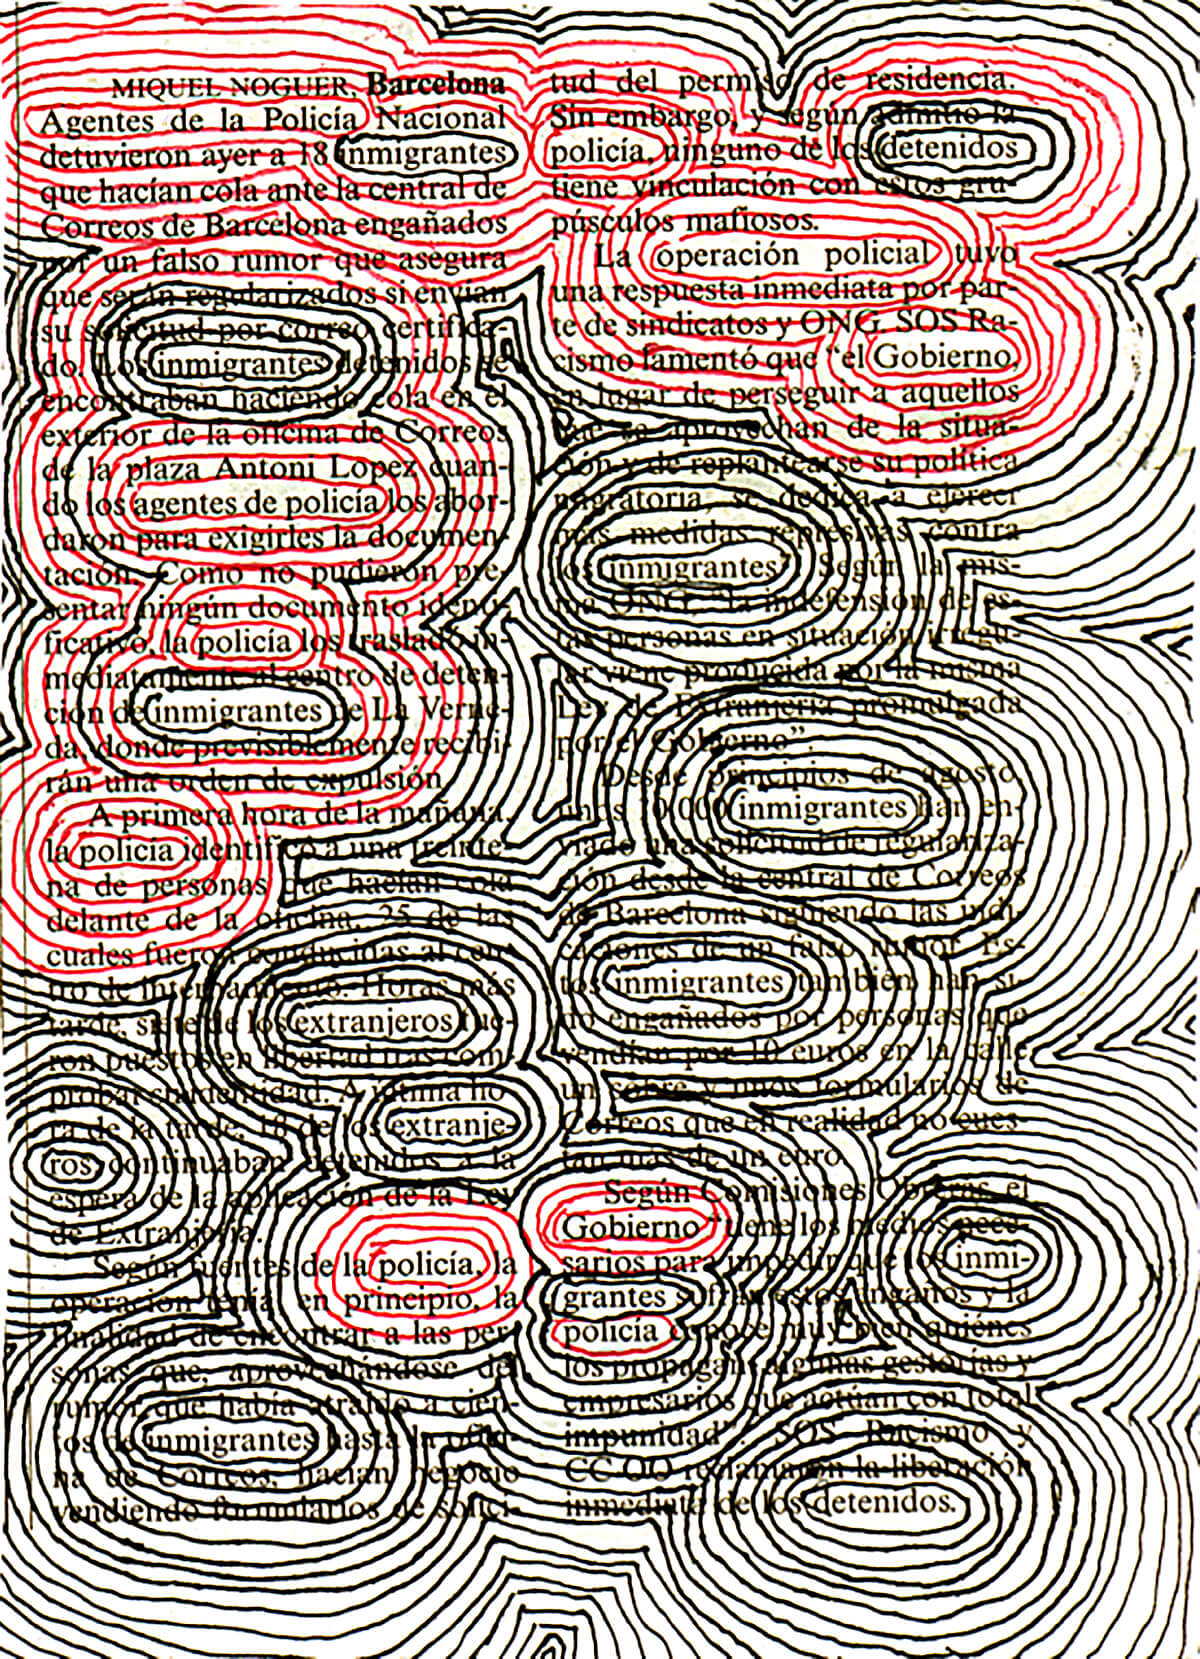 MIQUEL NOGUER, Barcelona
Agentes de la Policía Nacional
detuvieron ayer a 18 inmigrantes
que hacían cola ante la central de
Correos de Barcelona engañados
por un falso rumor que asegura
que serán regularizados si envían
su solicitud por correo certifica-
do. Los inmigrantes detenidos se
encontraban haciendo cola en el
exterior de la oficina de Correos
de la plaza Antoni Lopez cuan-
do los agentes de policía los abor-
daron para exigirles la documen-
tación. Como no pudieron pre-
sentar ningún documento identi-
ficativo, la policía los trasladó in-
mediatamente al centro de deten-
ción de inmigrantes de La Verne-
da, donde previsiblemente recibi-
rán una orden de expulsión.
A primera hora de la mañana,
la policía identificó a una treinte-
na de personas que hacían cola
delante de la oficina, 25 de las
cuales fueron conducidas al cen-
tro de internamiento. Horas más
tarde, siete de los extranjeros fue-
ron puestos en libertad tras com-
probar su identidad. A última ho-
ra de la tarde, 18 de los extranje-
ros continuaban detenidos a la
espera de la aplicación de la Ley
de Extranjería.
Según fuentes de la policía, la
operación tenía, en principio, la
finalidad de encontrar a las per-
sonas que, aprovechándose del
rumor que había atraído a cien-
tos de inmigrantes hasta la ofici-
na de Correos, hacían negocio
vendiendo formularios de solici-
tud del permiso de residencia.
Sin embargo, y según admitió la
policía, ninguno de los detenidos
tiene vinculación con estos gru-
púsculos mafiosos.
La operación policial tuvo
una respuesta inmediata por par-
te de sindicatos y ONG. SOS Ra-
cismo lamentó que "el Gobierno,
en lugar de perseguir a aquellos
que se aprovechan de la situa-
ción y de replantearse su política
migratoria, se dedica a ejercer
más medidas represivas contra
los inmigrantes". Según la mis-
ma ONG, "la indefensión de es-
tas personas en situación irregu-
lar viene producida por la misma
Ley de Extranjería promulgada
por el Gobierno".
Desde principios de agosto,
unos 10.000 inmigrantes han en-
viado una solicitud de regulariza-
ción desde la central de Correos
de Barcelona siguiendo las indi-
caciones de un falso rumor. Es-
tos inmigrantes también han si-
do engañados por personas que
vendían por 10 euros en la calle
un sobre y unos formularios de
Correos que en realidad no cues-
tan más de un euro.
Según Comisiones Obreras, el
Gobierno "tiene los medios nece-
sarios para impedir que los inmi-
grantes sufran estos engaños y la
policía conoce muy bien quiénes
los propagan: algunas gestorías y
empresarios que actúan con total
impunidad". SOS Racismo y
CC OO reclamaron la liberación
inmediata de los detenidos.